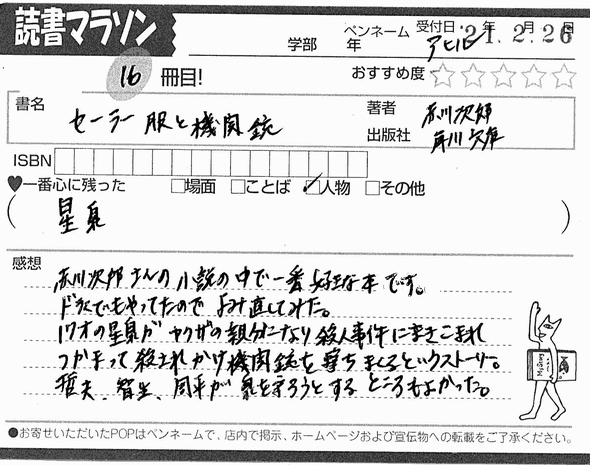 読書マラソン
学部 年 ペンネーム アヒル 受付日・21.2.26
年 月 日
16 冊目!
おすすめ度 ☆☆☆☆☆
書名 セーラー服と機関銃
著者 赤川次郎
出版社 角川文庫
ISBN
♥一番心に残った □場面 □ことば ☑人物 □その他
( 星泉 )
感想
赤川次郎さんの小説の中で一番好きな本です。
ドラマでもやってたので よみ直してみた。
17才の星泉が ヤクザの親分になり 殺人事件にまきこまれ
つかまって 殺されかけ機関銃を撃ちまくるというストーリー。
哲夫、智生、周平が 泉を守ろうとする ところもよかった。
●お寄せいただいたPOPはペンネームで、店内で掲示、ホームページおよび宣伝物への転載をご了承ください。